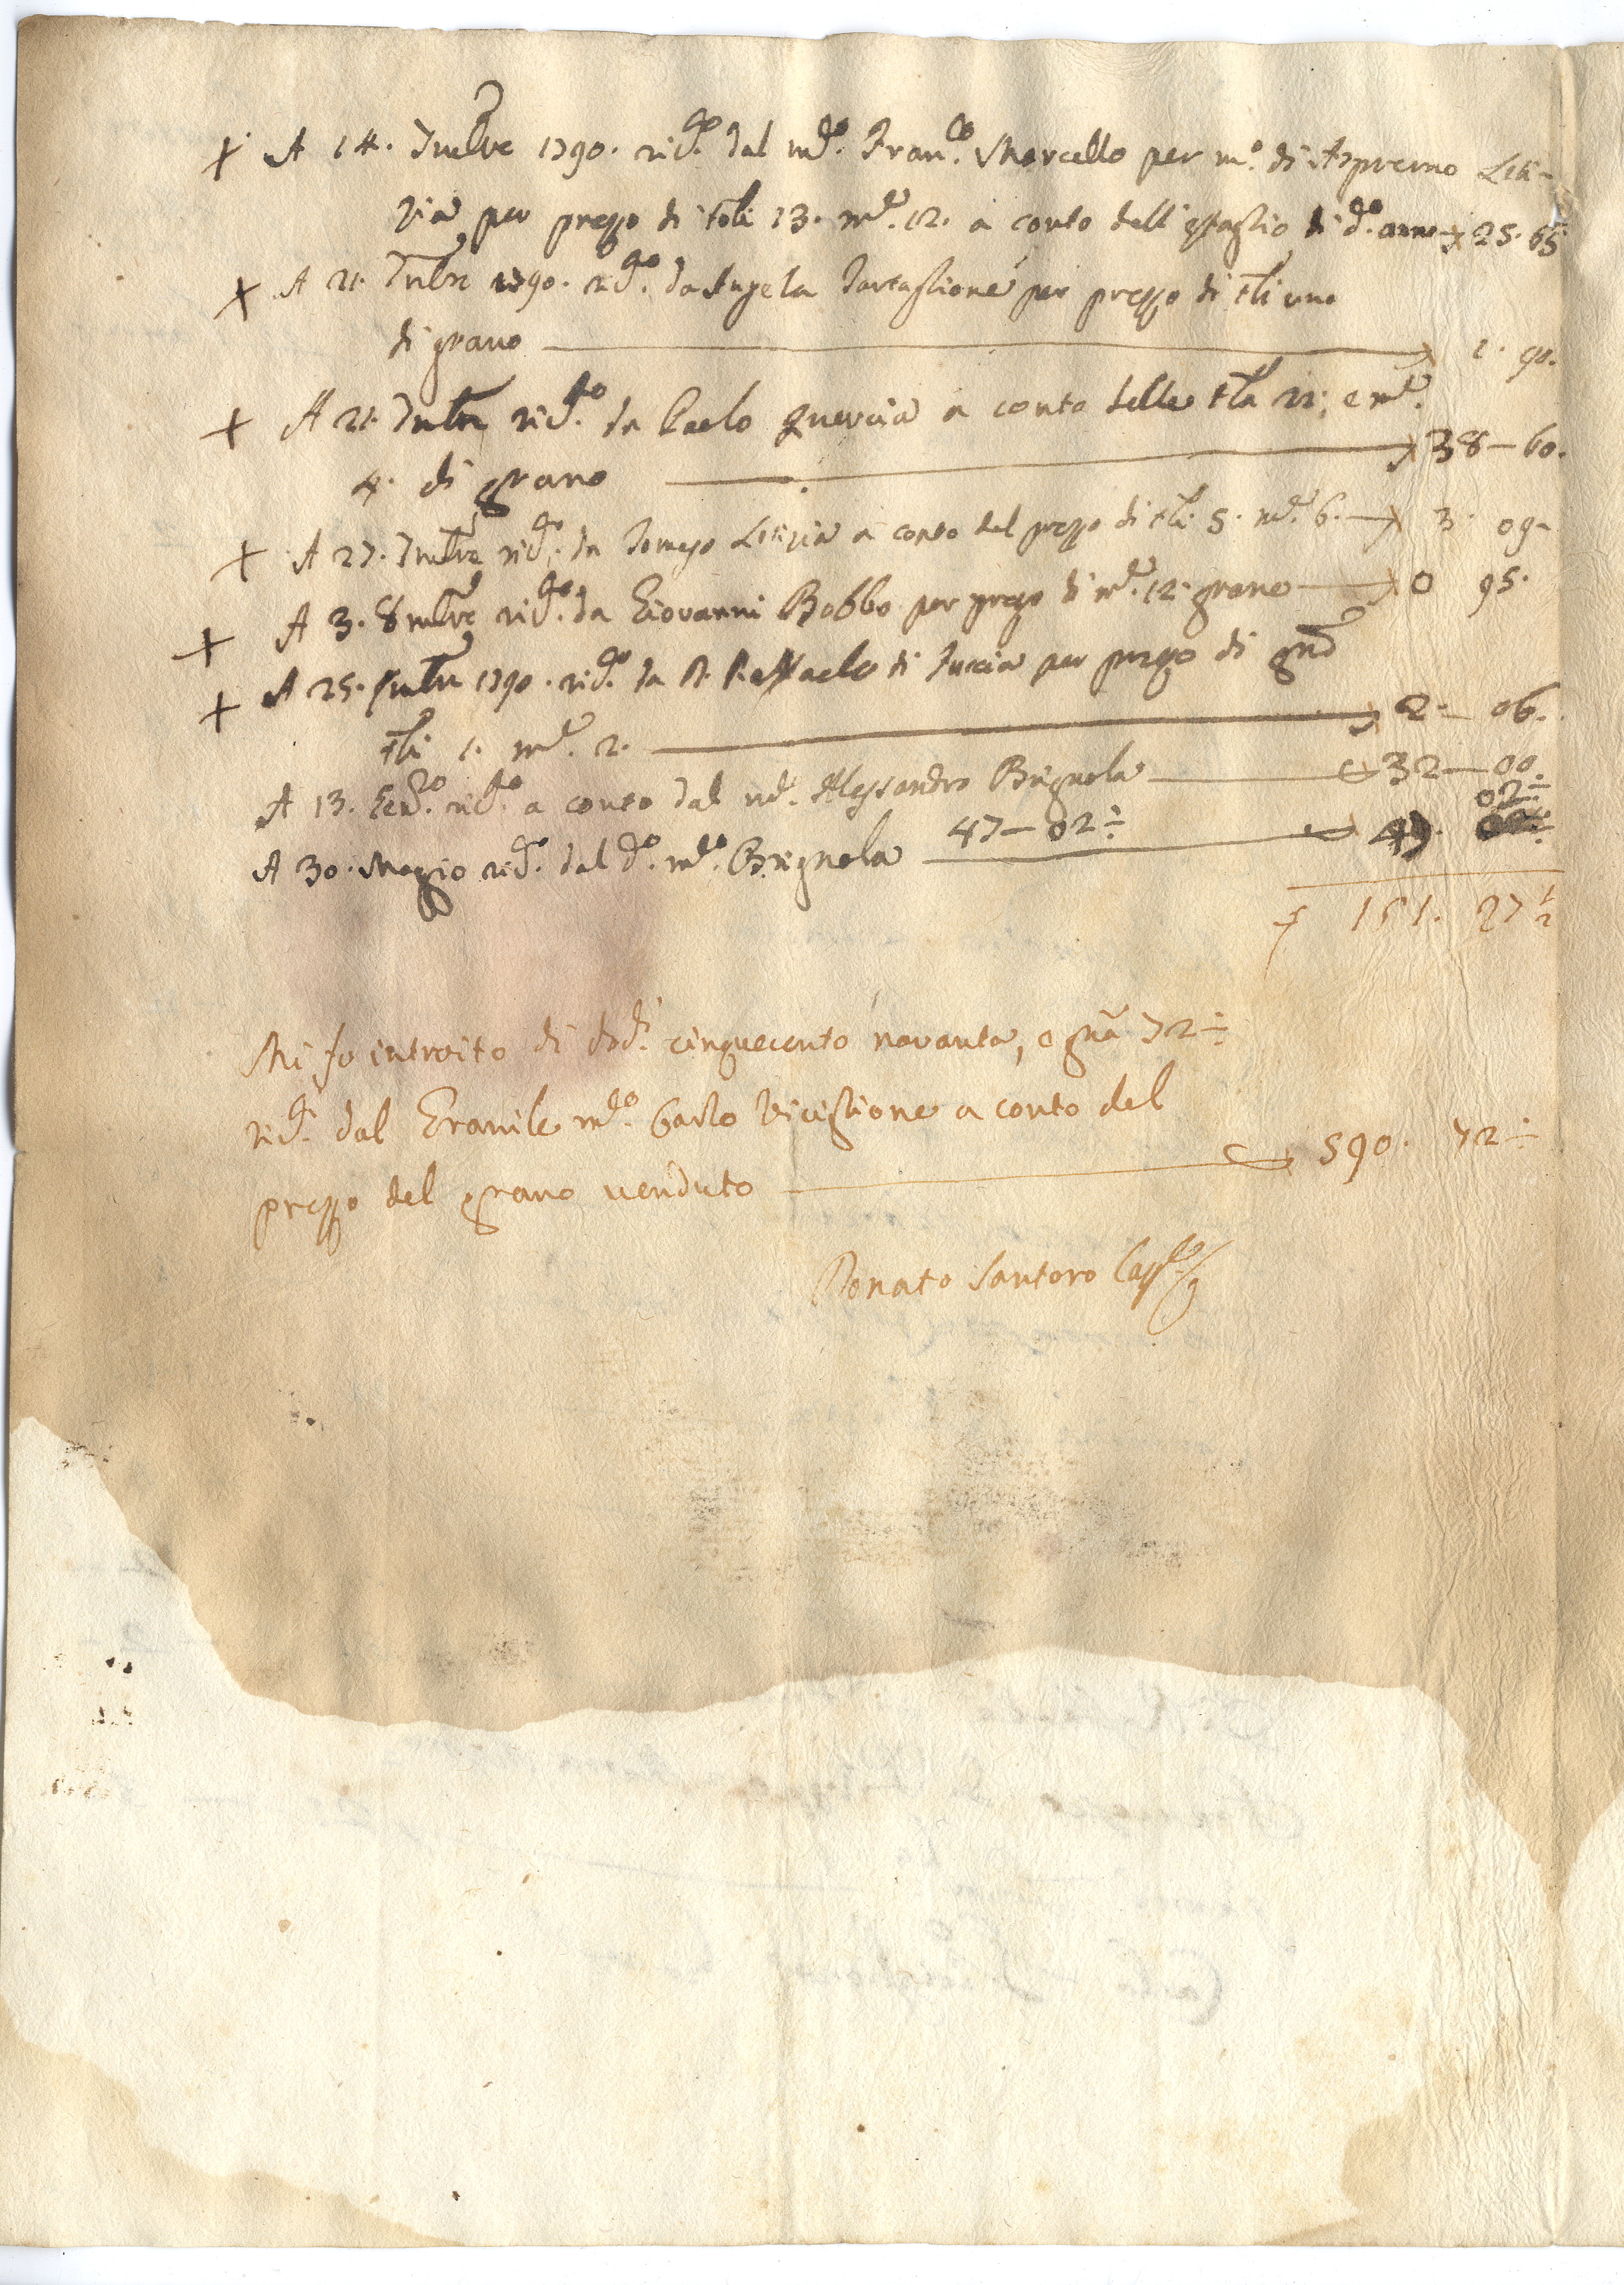 + A 14. 7mbre 1790. ric.to dal m.co Fran.co Marcello per m.o di Aspremo Leti-
zia per prezzo di toli 13. m.e 12. a conto dell'estaglio di d.o anno 25. 65
+ A 21. 7mbre 1790. ric.to da Angela Tartaglione per prezzo di tli uno
di grano 1. 90.
+ A 21. 7mbre ric.to da Paolo Quercia a conto delle tla 21, e m.e
4. di grano 38-60.
+ A 27. 7mbre ric.to da Letizia a conto del prezzo di tli. 5. m.e 6. 3. 09-
+ A 3. 8mbre ric.to da Giovanni Bobbo per prezzo di m.e 12. grano 0 95.
+ A 25. 1790. ric.to da D. Raffaele di Tuccia per prezzo di
tli 1. m.e 2. 2. 06.
A 13. Gen.o ric.to a conto dal m.co Alessandro Brignola 32-00
A 30. Magio ric.to dal d.o m.co Brignola 47-02÷ 47. 02÷
151. 27 1/2
Mi fo introito di d.ti cinquecento novanta, e gña 72÷
ric.ti dal m.co Carlo Viciglione a conto del
prezzo del grano venduto 590. 72÷
Donato Santoro